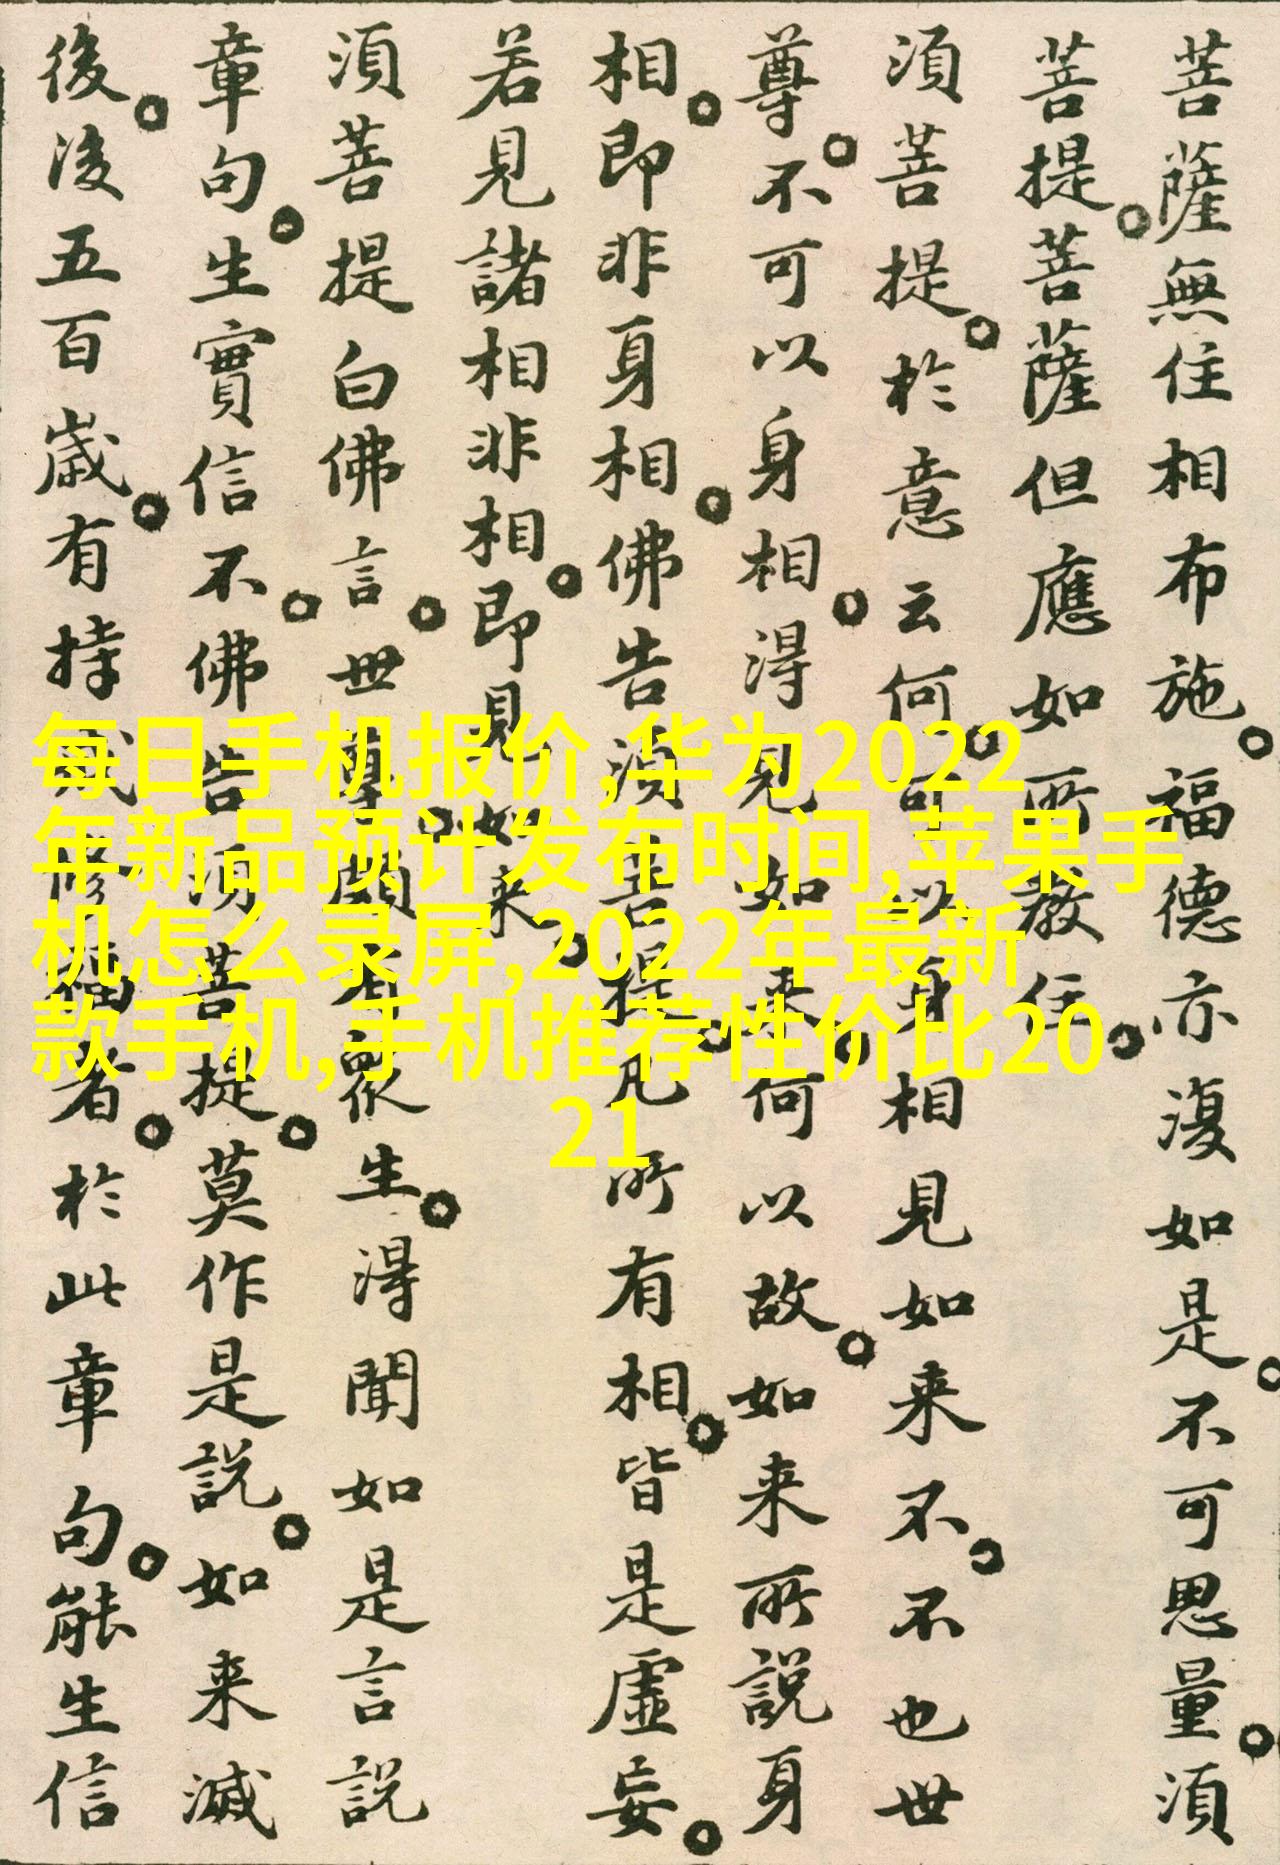 菩薩無住相布施。福德亦復如是。不可思量。須
菩提。菩薩但應如所教住。
須菩提。於意云何。可以身相見如来不。不也世
尊。不可以身相。得見如来。何以故。如来所說身
相。即非身相。佛告須菩提。凡所有相。皆是虛妄。
若見諸相非相。即見如来。
須菩提白佛言。世尊。頗有眾生。得聞如是言說
章句。生實信不。佛告須菩提。莫作是說。如来滅
後。後五百歲。有持戒修福者。於此章句。能生信
每日手机报价,华为2022
年新品预计发布时间,苹果手
机怎么录屏,2022年最新
款手机,手机推荐性价比20
21